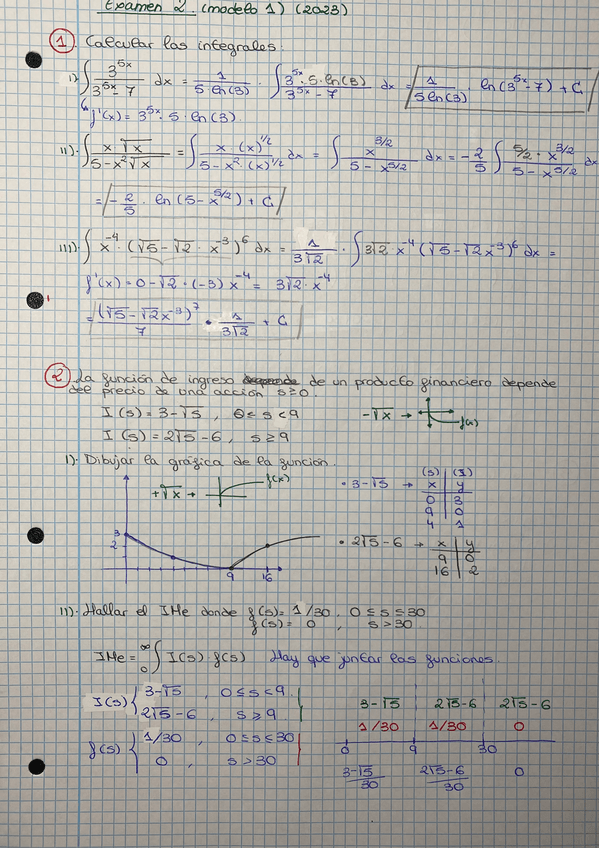 Examen 2 (modelo 1) (2023)
① Calcular las integrales:
I) ∫ 3^5x / 3^5x - 7 dx = 1 / 5·ln(3) · ∫ 3^5x · 5 · ln(3) / 3^5x - 7 dx = 1 / 5 ln(3) · ln(3^5x - 7) + C
f'(x) = 3^5x · 5 · ln(3)
II)· ∫ x √x / 5 - x² √x = ∫ x · (x)^1/2 / 5 - x² · (x)^1/2 dx = ∫ x^3/2 / 5 - x^5/2 dx = - 2/5 ∫ 5/2 · x^3/2 / 5 - x^5/2 dx
= - 2/5 · ln (5 - x^5/2) + C
III)· ∫ x^-4 · (√5 - √2 · x^-3)^6 dx = 1 / 3√2 · ∫ 3√2 · x^-4 (√5 - √2 x^-3)^6 dx =
f'(x) = 0 - √2 · (-3) x^-4 = 3√2 · x^-4
= (√5 - √2 x^-3)^7 / 7 · 1 / 3√2 + C
② La función de ingreso de un producto financiero depende
del precio de una acción s ≥ 0.
I(s) = 3 - √s , 0 ≤ s < 9
I(s) = 2√s - 6 , s ≥ 9
-√x → f(x)
I)· Dibujar la gráfica de la función.
+√x → f(x)
· 3 - √s → (s) (I)
x y
0 3
9 0
4 1
3
2
9 16
· 2√s - 6 → x y
9 0
16 2
II)· Hallar el IMe donde f(s) = 1/30 , 0 ≤ s ≤ 30
f(s) = 0 , s > 30
IMe = ∞ ∫ 0 I(s) · f(s) Hay que juntar las funciones.
I(s) { 3 - √s , 0 ≤ s < 9
2√s - 6 , s ≥ 9
f(s) { 1/30 , 0 ≤ s ≤ 30
0 , s > 30
3 - √s 2√s - 6 2√s - 6
1/30 1/30 0
0 9 30
3 - √s / 30 2√s - 6 / 30 0